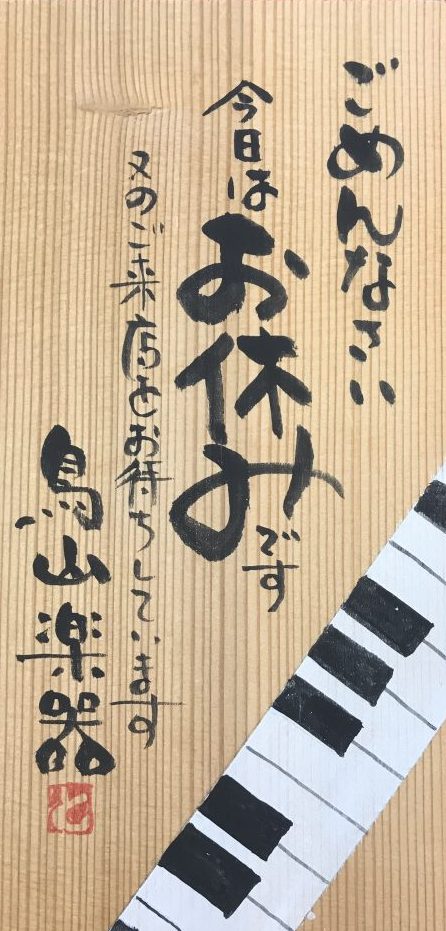 ごめんなさい
今日はお休みです
又のご来店をお待ちしています
鳥山楽器